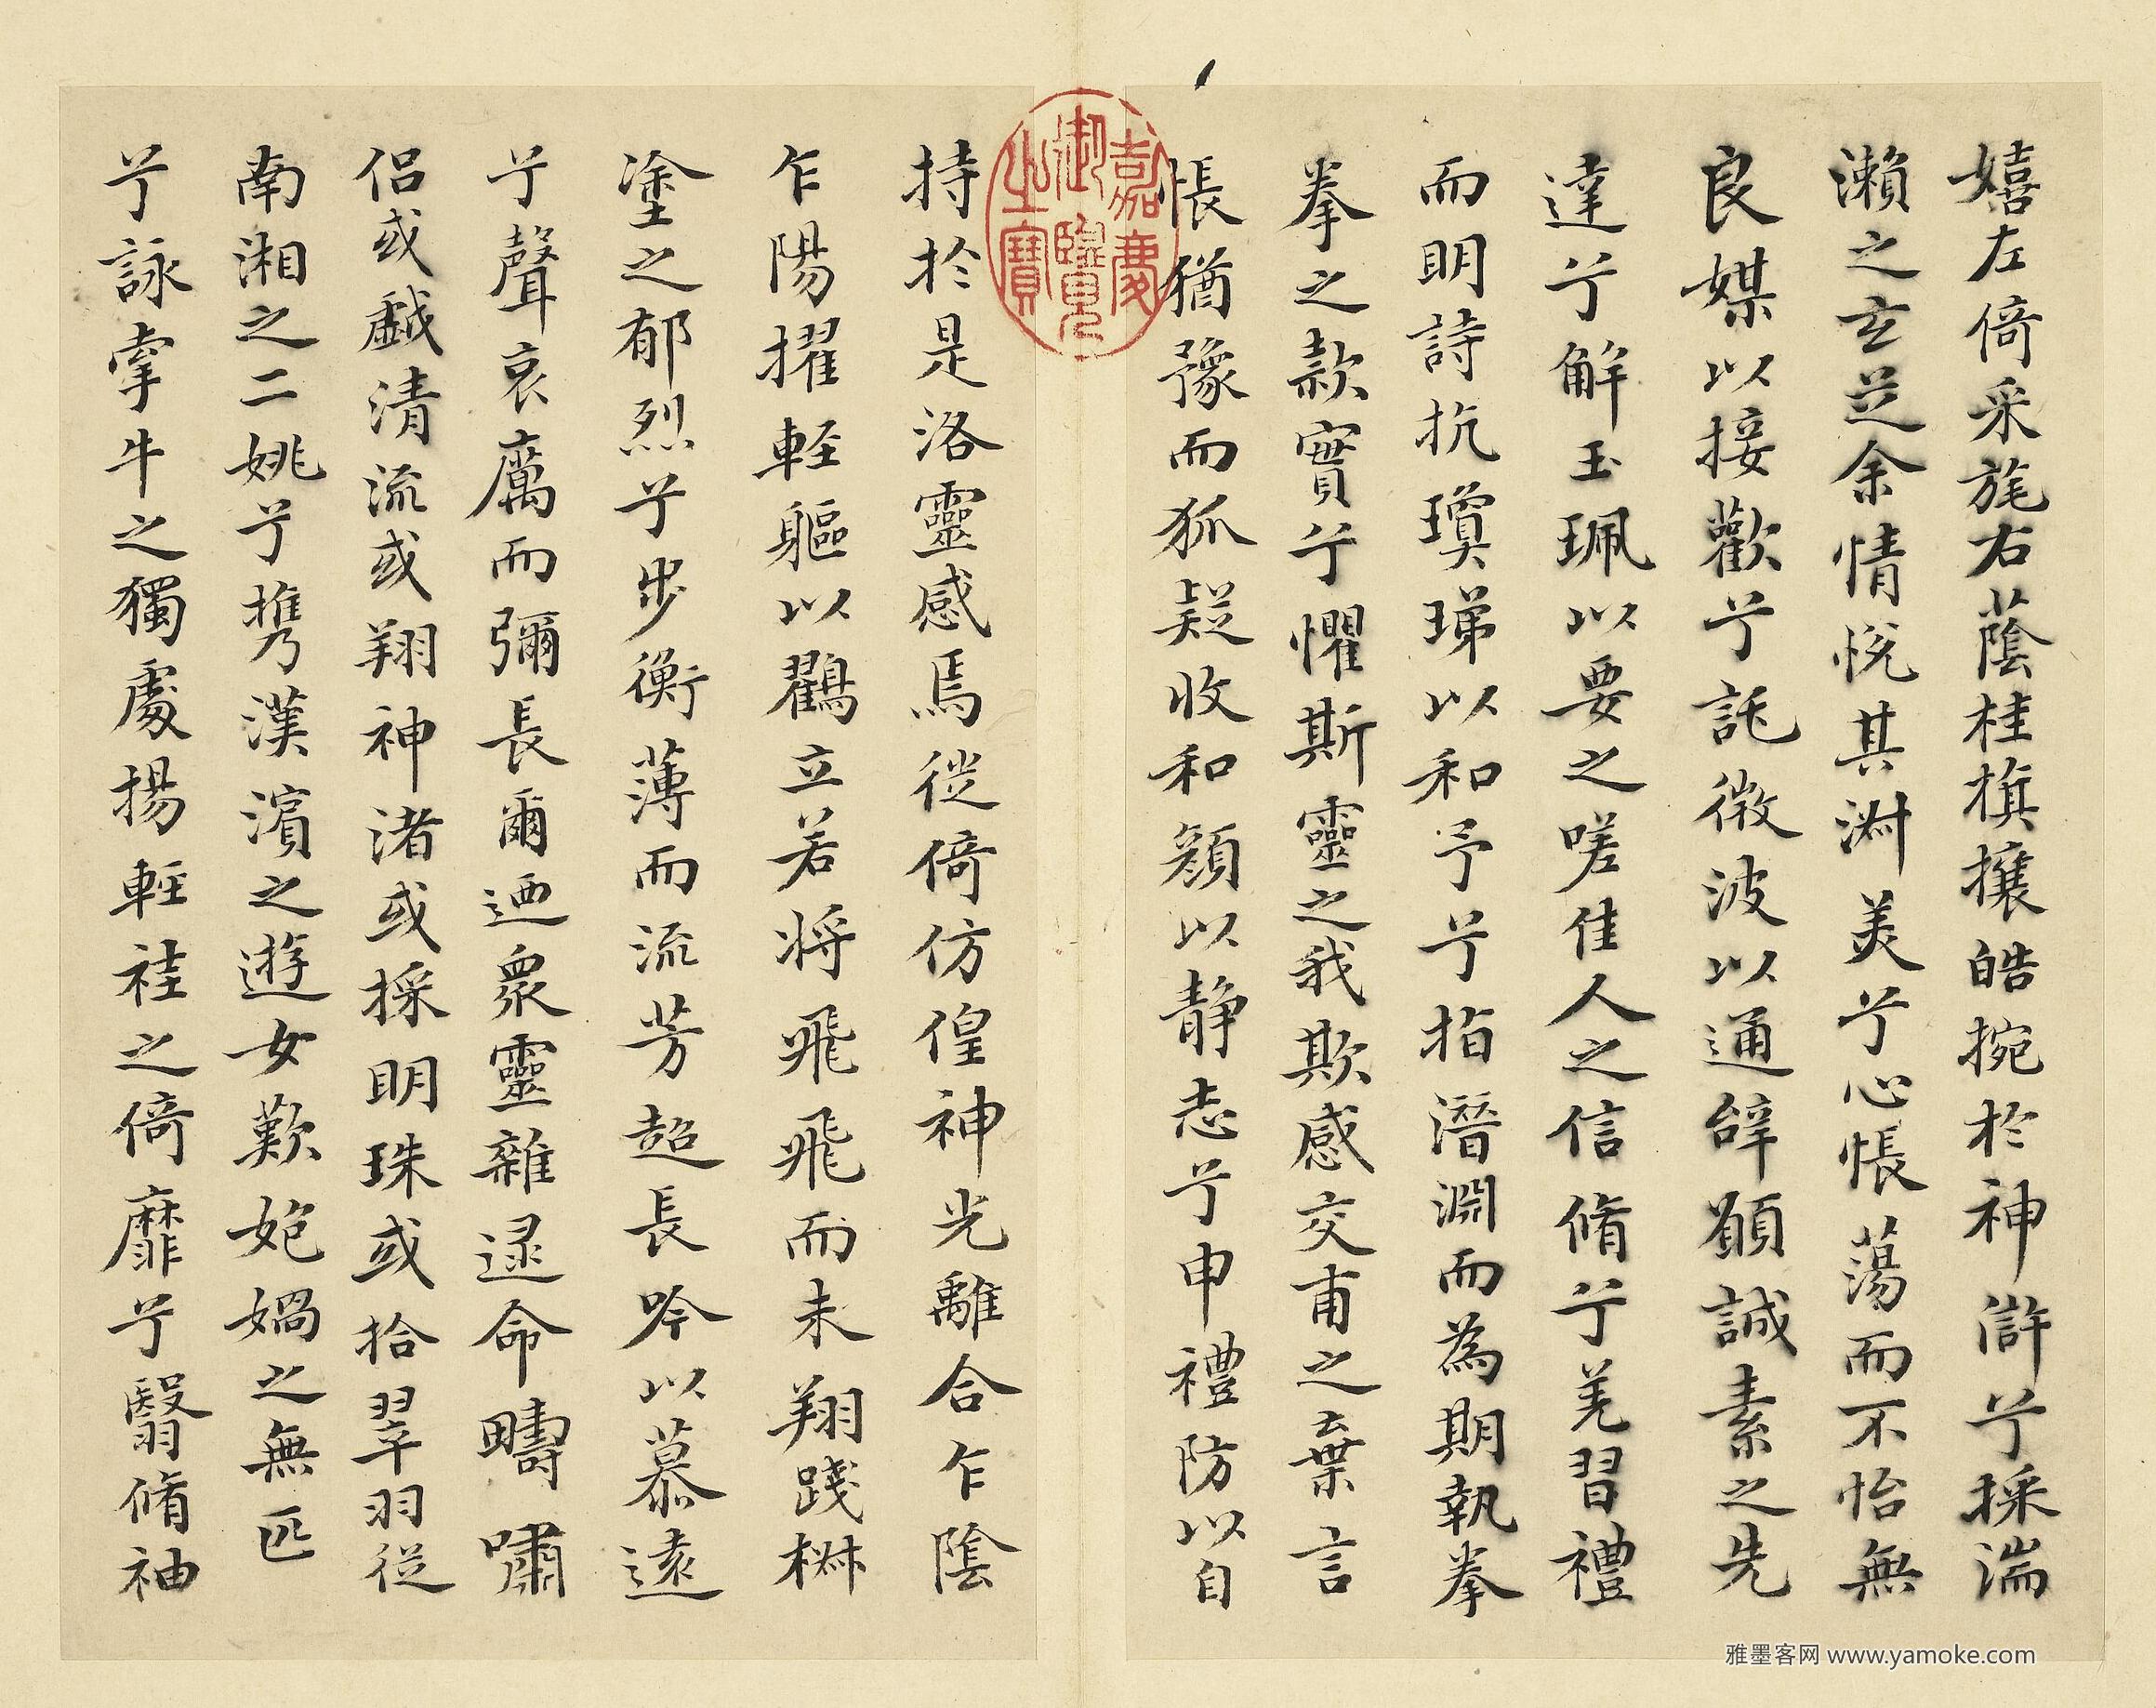 嬉左倚采旄右蔭桂旗攘皓捥於神滸兮採湍
瀨之玄芝余情悅其淑美兮心悵蕩而不怡無
良媒以接歡兮託微波以通辭願誠素之先
達兮解玉珮以要之嗟佳人之信脩兮羌習禮
而明詩抗瓊珶以和予兮指潛淵而為期執拳
拳之款實兮懼斯靈之我欺感交甫之棄言
悵猶豫而狐疑收和顏以静志兮申禮防以自
持於是洛靈感焉從倚仿偟神光離合乍陰
乍陽擢輕軀以鸛立若將飛飛而未翔踐椒
塗之郁烈兮步衡薄而流芳超長吟以慕遠
兮聲哀厲而彌長爾迺衆靈雜逯命疇嘯
侶或戲清流或翔神渚或採明珠或拾翠羽從
南湘之二姚兮攜漢濱之遊女歎㚿媧之無匹
兮詠牽牛之獨處揚輕袿之倚靡兮翳脩袖
嘉慶
御覽
之寶
雅墨客网 www.yamoke.com